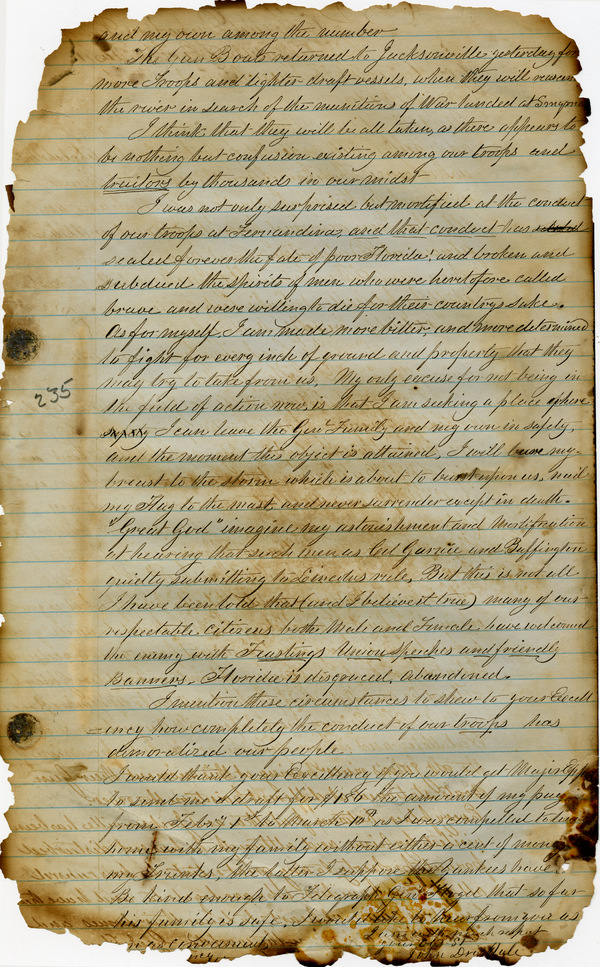 and my own among the number
The Gun Boats returned to Jacksonville yesterday for
more Troops and lighter draft vessels, when they will
the river in search of the munitions of War landed at Smyrna
I think that they will be all taken, as there appears to
be nothing but confusion existing among our troops and
traitors by thousands in our midst
I was not only surprised but mortified at the conduct
of our troops at Fernandina, and that conduct has
sealed forever the fate of poor Florida; and broken and
subdued the spirits of men who were heretofore called
brave and were willing to die for their country's sake.
As for myself, I am made more bitter, and more determined
to fight for every inch of ground and property that they
may try to take from us. My only excuse for not being in
the field of action now, is that I am seeking a place where
235
I can leave the Genl Family and my own in safety,
and the moment this object is attained, I will bare my
breast to the storm which is about to burst upon us, nail
my Flag to the mast, and never surrender except in death.
"Great God" imagine my astonishment and mortification
at hearing that such men as Col Garvie and Buffington
quietly submitting to Lincolns rule. But this is not all
I have been told that (and I believe it true) many of our
respectable citizens both Male and Female have welcomed
the enemy with Feastings Union speeches and friendly
Banners. Florida is disgraced, abandoned.
I mention these circumstances to shew to your Excell
ency how completely the conduct of our troops has
demoralized our people
I would thank your Excellency if you would get Major
to send me a draft for $186 the amount of my pay
from Febry 1st to March 10th as I was compelled to leave
home with my family without either a cent of money
my Trunks, the latter I suppose the Yankees have.
Be kind enough to Telegraph Genl that so far
his family is safe. I would like to hear from you as
as convenient
I am with much respect
your
John